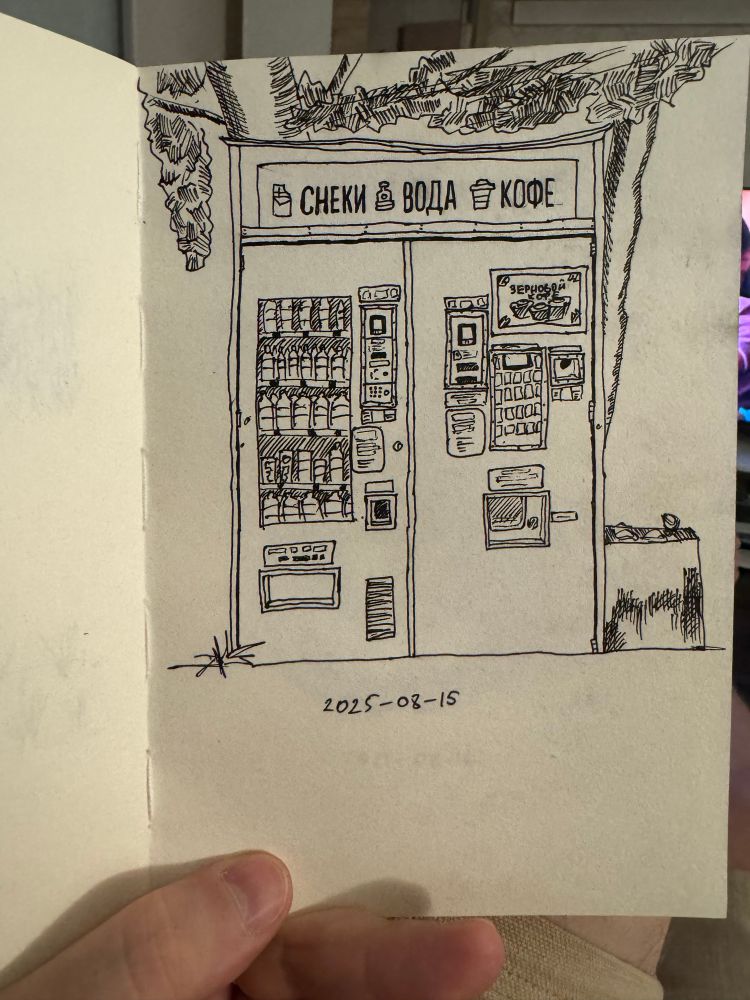 СНЕКИ ВОДА КОФЕ
ЗЕРНОВОЙ
КОФЕ
2025-08-15